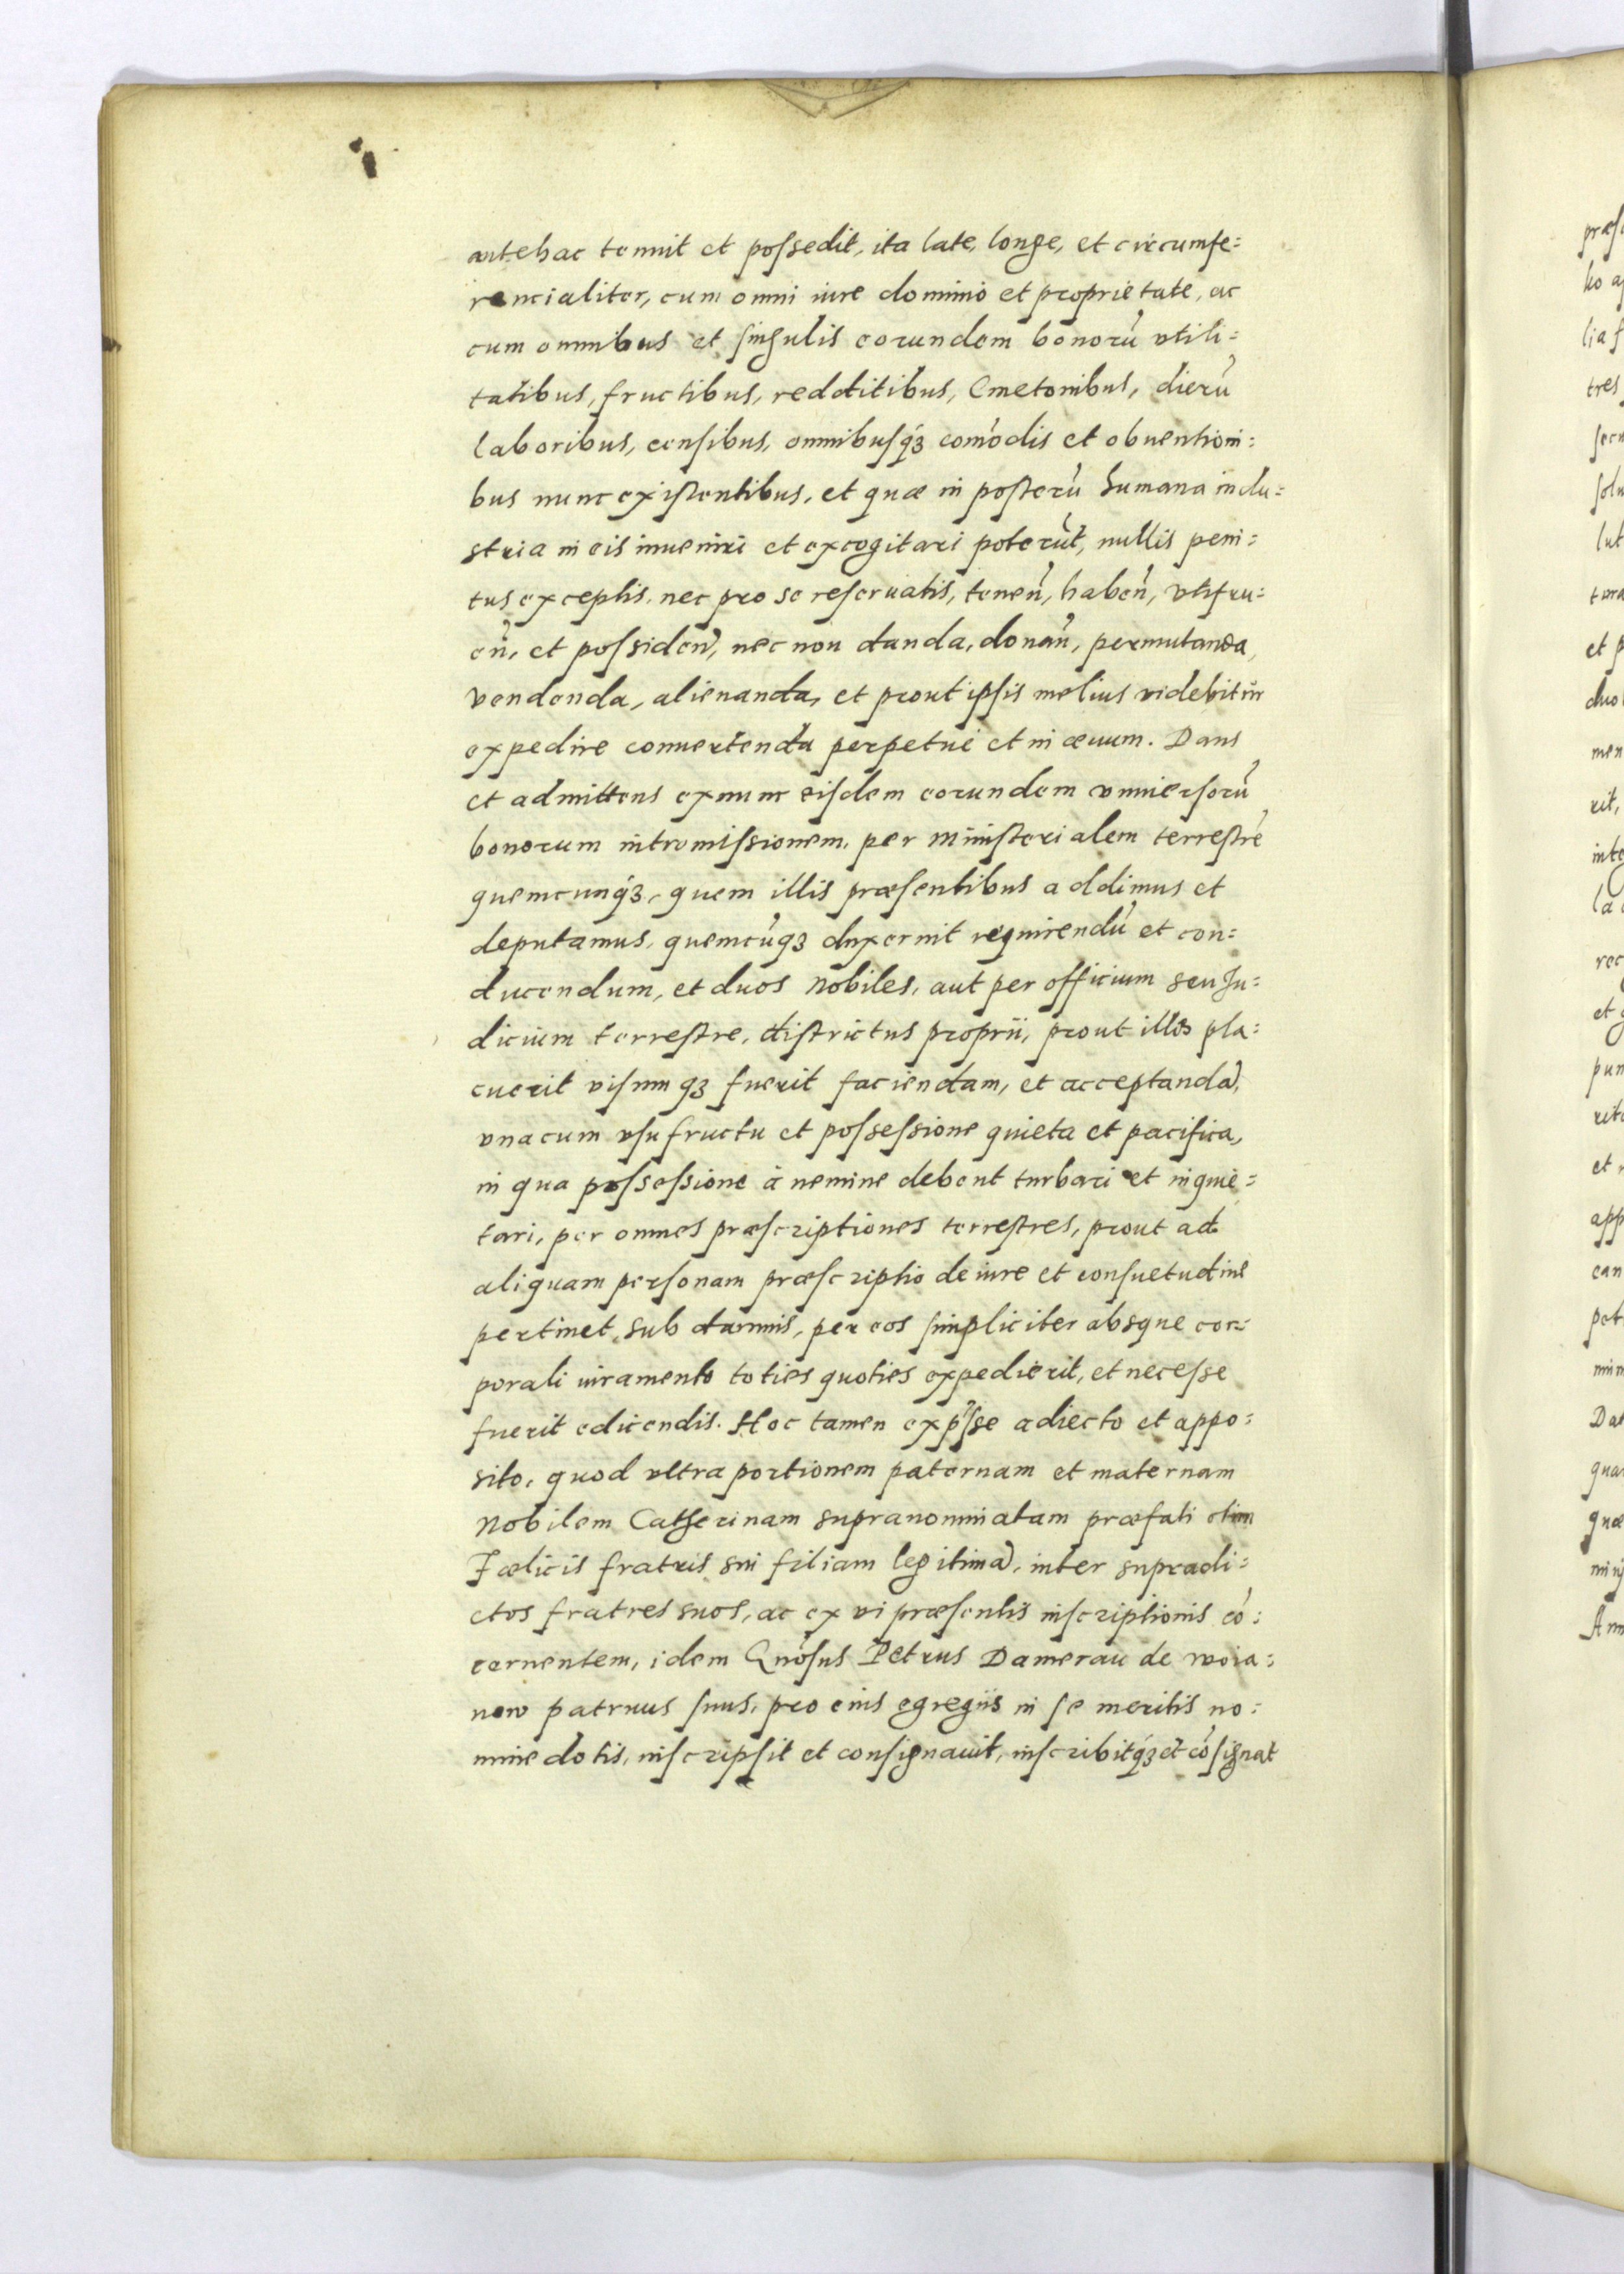 antehac tenuit et possedit, ita late, longe, et circumfe:
rencialiter, cum omni iure dominio et proprietate, ac
cum omnibus et singulis eorundem bonorũ vtili:
tatibus, fructibus, redditibus, Cmetonibus, dierũ
laboribus, censibus, omnibusq́ꝫ com̃odis et obuentioni:
bus nunc existentibus, et quæ in posterũ humana indu:
stria in eis inueniri et excogitari poterũt, nullis peni:
tus exceptis, nec pro se reseruatis, teneñ, habeñ, vtifru:
eñ, et possideñ, nec non danda, donañ, permutanda,
vendenda, alienanda, et prout ipsis melius videbitur
expedire conuertenda perpetue et in æuum. Dans
et admittens exnunc eisdem eorundem vniuersorũ
bonorum intromissionem, per ministerialem terrestrẽ
quemcunq́ꝫ, quem illis præsentibus addimus et
deputamus, quemcũqꝫ duxerint requirendũ et con:
ducendum, et duos Nobiles, aut per officium seu Ju:
dicium terrestre, districtus proprii, prout illos pla:
cuerit visumqꝫ fuerit faciendam, et acceptandã,
vnacum vsufructu et possessione quieta et pacifica,
in qua possessione à nemine debent turbari et inquie:
tari, per omnes præscriptiones terrestres, prout ad
aliquam personam præscriptio de iure et consuetudine
pertinet, sub damnis, per eos simpliciter absque cor:
porali iuramento toties quoties expedierit, et necesse
fuerit edicendis. Hoc tamen exp̃sse adiecto et appo:
sito, quod vltra portionem paternam et maternam
Nobilem Catherinam supranominatam præfati olim
Fælicis fratris sui filiam legitimã, inter supradi:
ctos fratres suos, ac ex vi præsentis inscriptionis cõ:
cernentem, idem Gñosus Petrus Damerau de woia:
now patruus suus, pro eius egregiis in se meritis no:
mine dotis, inscripsit et consignauit, inscribitq́ꝫ et cõsignat